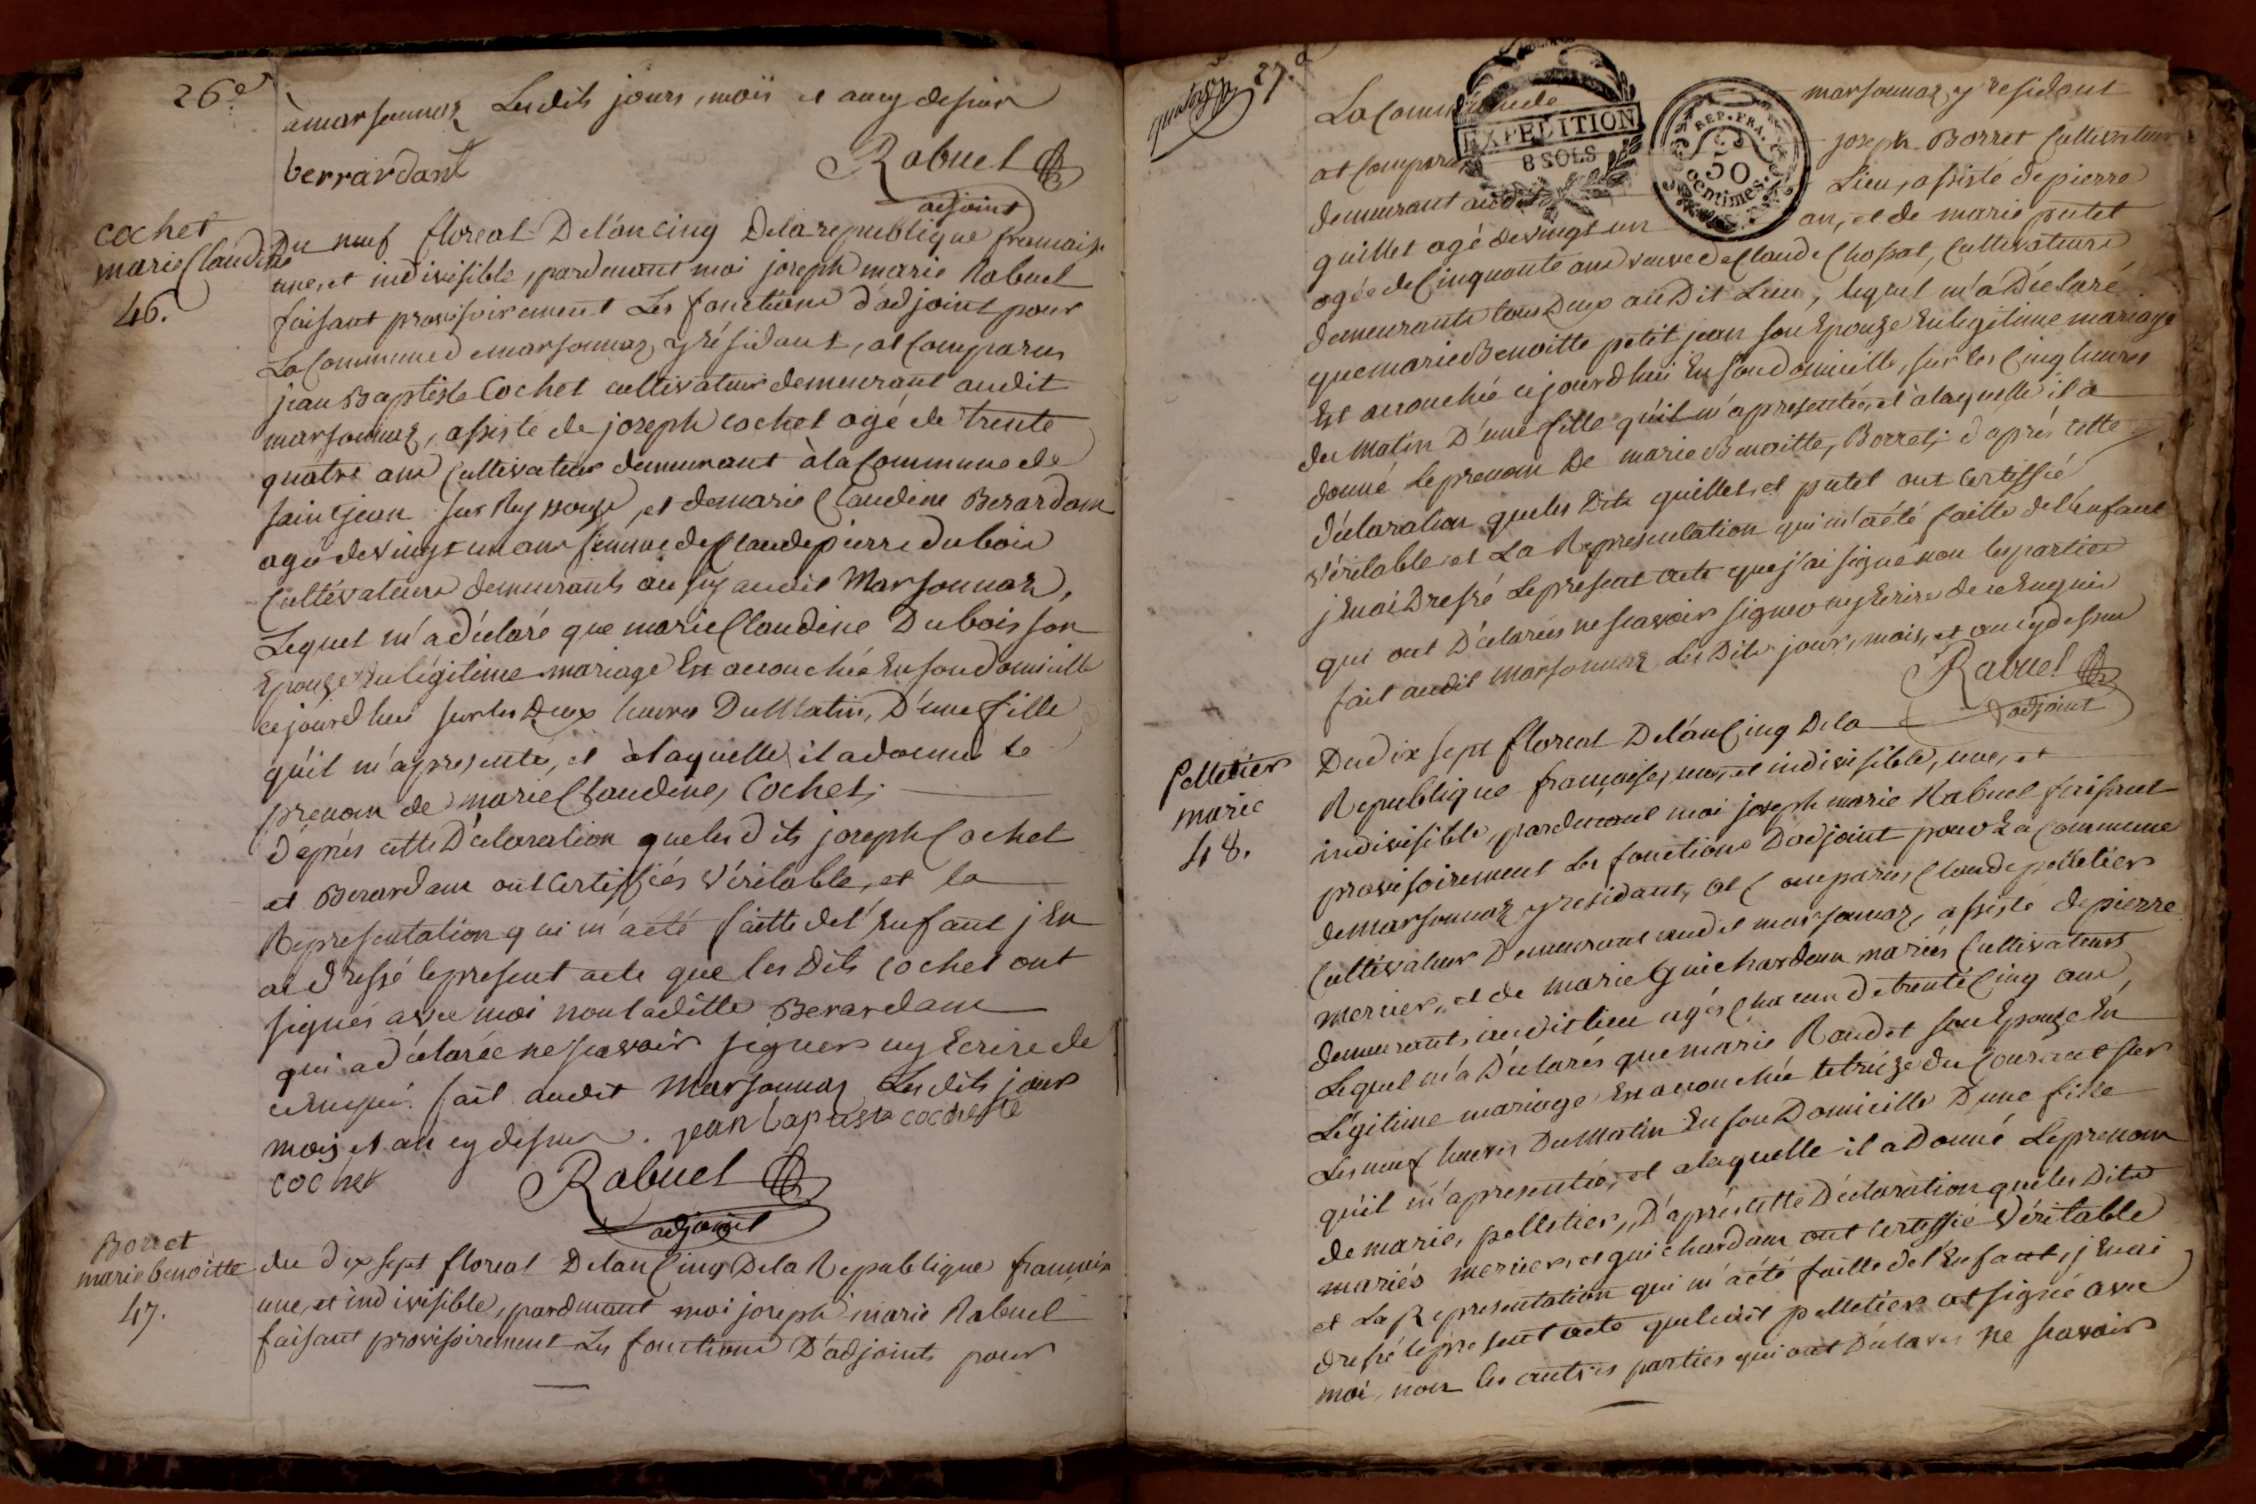 26e
à marsonnaz Lesdits jours, mois et an cy dessus
berrardant
Rabuel
adjoint
cochet
marie Claudine
46.
Du neuf floreal De l'an Cinq De la republique francaise
une, et indivisible, pardevant moi joseph marie Rabuel
faisant provisoirement Les fonctions d'adjoint pour
La Commune de marsonnaz y résidant, at Comparus
jean Baptiste Cochet cultivateur demeurant audit
marsonnaz, assisté de joseph cochet agé de trente
quatre ans Cultivateur demeurant à la Commune de
saint jean sur Reyssouse, et de marie Claudine Berardam
agée de vingt un ans femme de Claude pierre dubois
Cultivateurs demeurants aussy audit Marsonnaz,
Lequel m'a déclaré que marie Claudine Dubois son
Epouze En légitime mariage Est accouchée En son domicille
ce jourd'huy sur les Deux heures Du Matin, D'une fille
qu'il m'a presenté, et à laquelle il a donné le
prenom de marie Claudine, Cochet;
d'après cette Déclaration que les dits joseph Cochet
et Berardam ont Certiffiés Véritable, et la
Representation qui m'a été faitte de l'Enfant j'En
ai Dressé le present acte que les Dits cochet ont
signés avec moi non laditte Berardam
qui a déclarée ne scavoir signer ny Ecrire de
ce Enquis. fait audit Marsonnaz Lesdits jours
mois et an cy dessus. jean baptiste cochet
cochet
Rabuel
adjoint
Borret
marie benoitte
47.
du dix sept floreal De l'an Cinq De la Republique francaise
une, et indivisible, pardevant moi joseph marie Rabuel
faisant provisoirement Les fonctions D'adjoints pour
27.e
La Commune de marsonnaz y residant
EXPEDITION
8 SOLS
REP. FRA.
50
centimes
at Comparu joseph Borret Cultivateur
demeurant audit Lieu, assisté de pierre
guillet agé de vingt un an, et de marie putet
agée de Cinquante ans veuve de Claude Chossat, Cultivateurs
demeurants tous Deux audit Lieu, lequel m'a Déclaré
que marie Benoitte petit jean son Epouze En legitime mariage
Est accouchée ce jourd'hui En son domicille, sur les Cinq heures
du Matin D'une fille qu'il m'a presentée, et à laquelle il a
donné le prenom De marie Benoitte, Borret; d'après cette
Déclaration que les Dits guillet, et putet ont Certiffié
Véritable et La Representation qui m'a été faitte de l'Enfant
j'En ai Dressé le present acte que j'ai signé non les parties
qui ont Déclarées ne scavoir signer ny Ecrire de ce Enquis
fait audit marsonnaz Les Dits jour, mois, et an cy dessus
Rabuel
adjoint
Pelletier
marie
48.
Du dix sept floreal De l'an Cinq De la
Republique francaise, une, et indivisible, une, et
indivisible, pardevant moi joseph marie Rabuel faisant
provisoirement Les fonctions D'adjoint pour La Commune
de marsonnaz y residant, at Comparus Claude pelletier
Cultivateur Demeurant audit marsonnaz, assisté de pierre
mercier, et de marie Guichardam mariés Cultivateurs
demeurants audit lieu agés Chacun de trente Cinq ans,
Lequel m'a Déclarés que marie Rondet son Epouze En
Légitime mariage Est accouchée le treize du Courant sur
Les neuf heures Du Matin En son Domicille D'une fille
qu'il m'a presentée, et a laquelle il a Donné Le prenom
de marie, pelletier, D'après cette Déclaration que les Dits
mariés mercier, et guichardam ont Certiffié Véritable
et La Representation qui m'a été faitte de l'Enfant, j'En ai
dressé le present acte que ledit pelletier at signé avec
moi, non les autres parties qui ont Déclarés ne scavoir